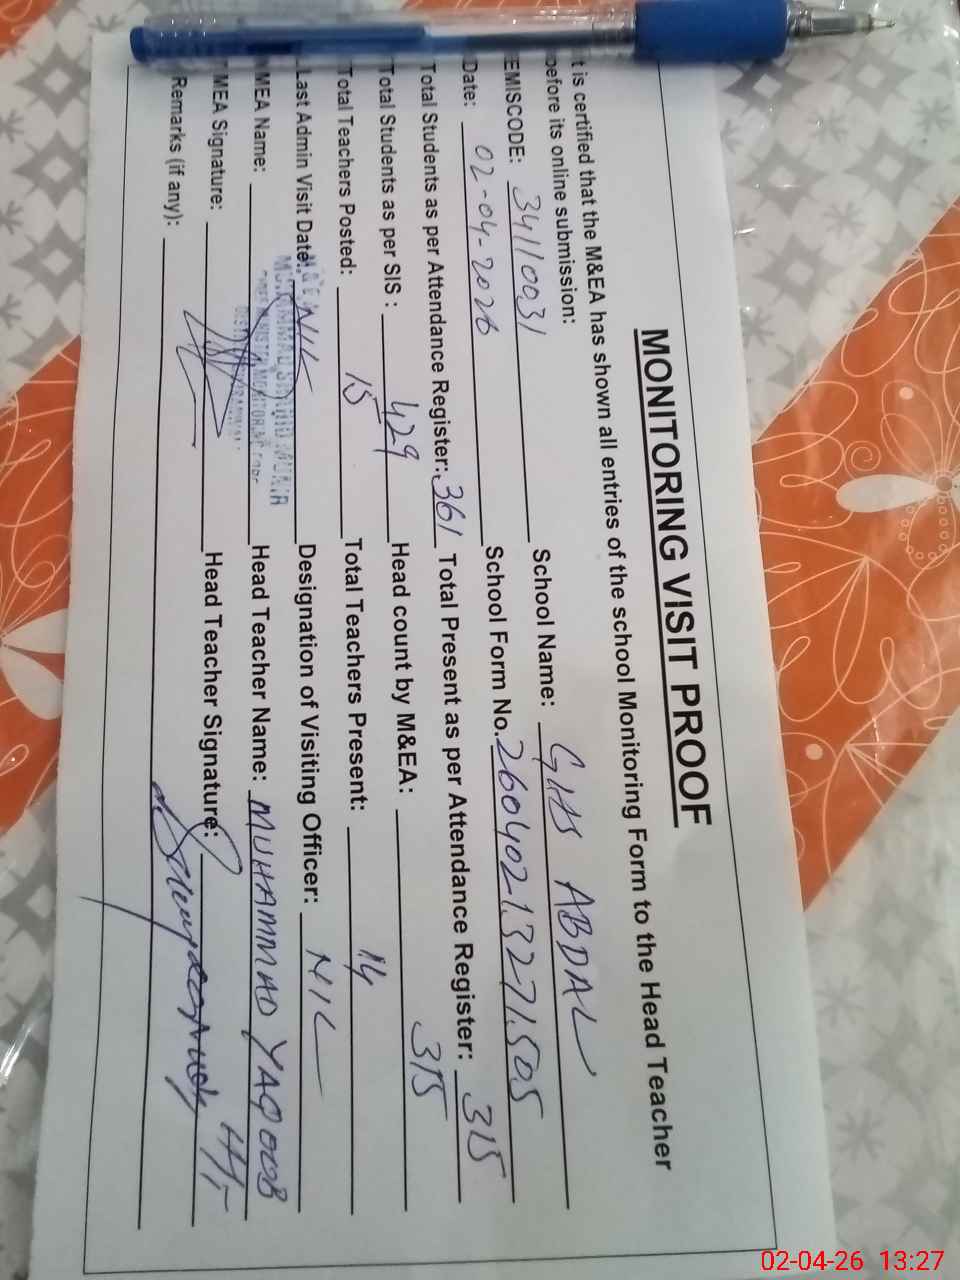 MONITORING VISIT PROOF
t is certified that the M&EA has shown all entries of the school Monitoring Form to the Head Teacher
before its online submission:
EMISCODE: 34110031 School Name: GHS ABDAL
Date: 02-04-2026 School Form No. 260402132771505
Total Students as per Attendance Register: 361 Total Present as per Attendance Register: 315
Total Students as per SIS : 429 Head count by M&EA: 315
Total Teachers Posted: 15 Total Teachers Present: 14
Last Admin Visit Date: NIL Designation of Visiting Officer: NIL
MEA Name: Head Teacher Name: MUHAMMAD YAQOOB
MEA Signature: Head Teacher Signature:
Remarks (if any):
02-04-26 13:27